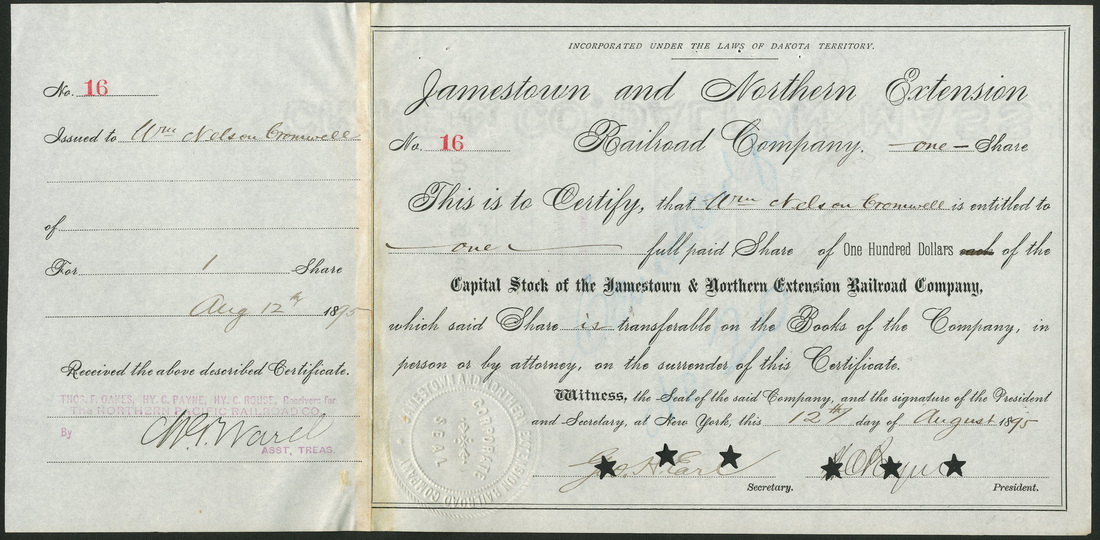 No. 16
Issued to Wm Nelson Cromwell
of
For 1 Share
Aug 12th 1895
Received the above described Certificate.
THOS. F. OAKES, HY. C. PAYNE, HY. C. ROUSE, Receivers for
The NORTHERN PACIFIC RAILROAD CO.
By
ASST. TREAS.
INCORPORATED UNDER THE LAWS OF DAKOTA TERRITORY.
Jamestown and Northern Extension
No. 16 Railroad Company. one Share
This is to Certify, that Wm Nelson Cromwell is entitled to
one full paid Share of One Hundred Dollars each of the
Capital Stock of the Jamestown & Northern Extension Railroad Company,
which said Share is transferable on the Books of the Company, in
person or by attorney, on the surrender of this Certificate.
Witness, the Seal of the said Company, and the signature of the President
and Secretary, at New York, this 12th day of August 1895
Geo. H. Earl
Secretary. President.
JAMESTOWN AND NORTHERN EXTENSION RAILROAD COMPANY
CORPORATE
SEAL